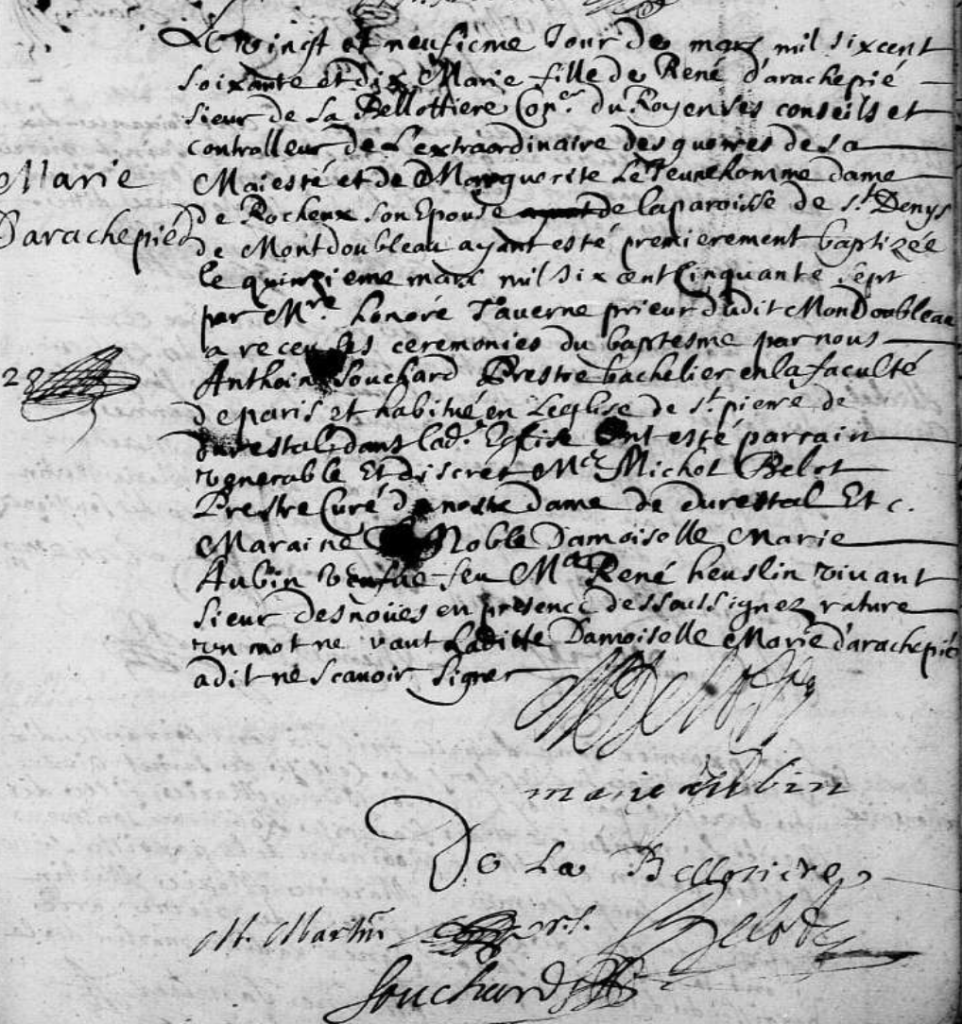 Le vingt et neufieme Jour de mars mil sixcent
soixante et dix Marie fille de René d'arachepié
sieur de La Bellottiere Con.er du Roy en ses conseils et
controlleur de L'extraordinaire des guerres de sa
Marie
Maiesté et de Marguerite Le Jeunehomme dame
de Rocheux son Epouse de la paroisse de s.t Denys
Darachepié
de Montdoubleau ayant esté premierement baptizée
le quinzieme mars mil six cent Cinquante sept
par M.re honoré Taverne prieur dudit MonDoubleau
a receu les ceremonies du baptesme par nous
28
Anthoine Souchard Prestre bachelier en la faculté
de paris et habitué en Leglise de s.t pierre de
durestal dans lad. Eglise Ont esté parrain
venerable Et discret M.re Michel Belot
Prestre Curé de nostre dame de durestal Et c.
Maraine Noble Damoiselle Marie
Aubin veufue feu M.re René heuslin vivant
sieur des noües en presence des soussignez rature
un mot ne vaut Laditte Damoiselle Marie d'arachepié
a dit ne scavoir signer
M Belot
marie aubin
De La Bellotiere
M. Martin Belot
Souchard